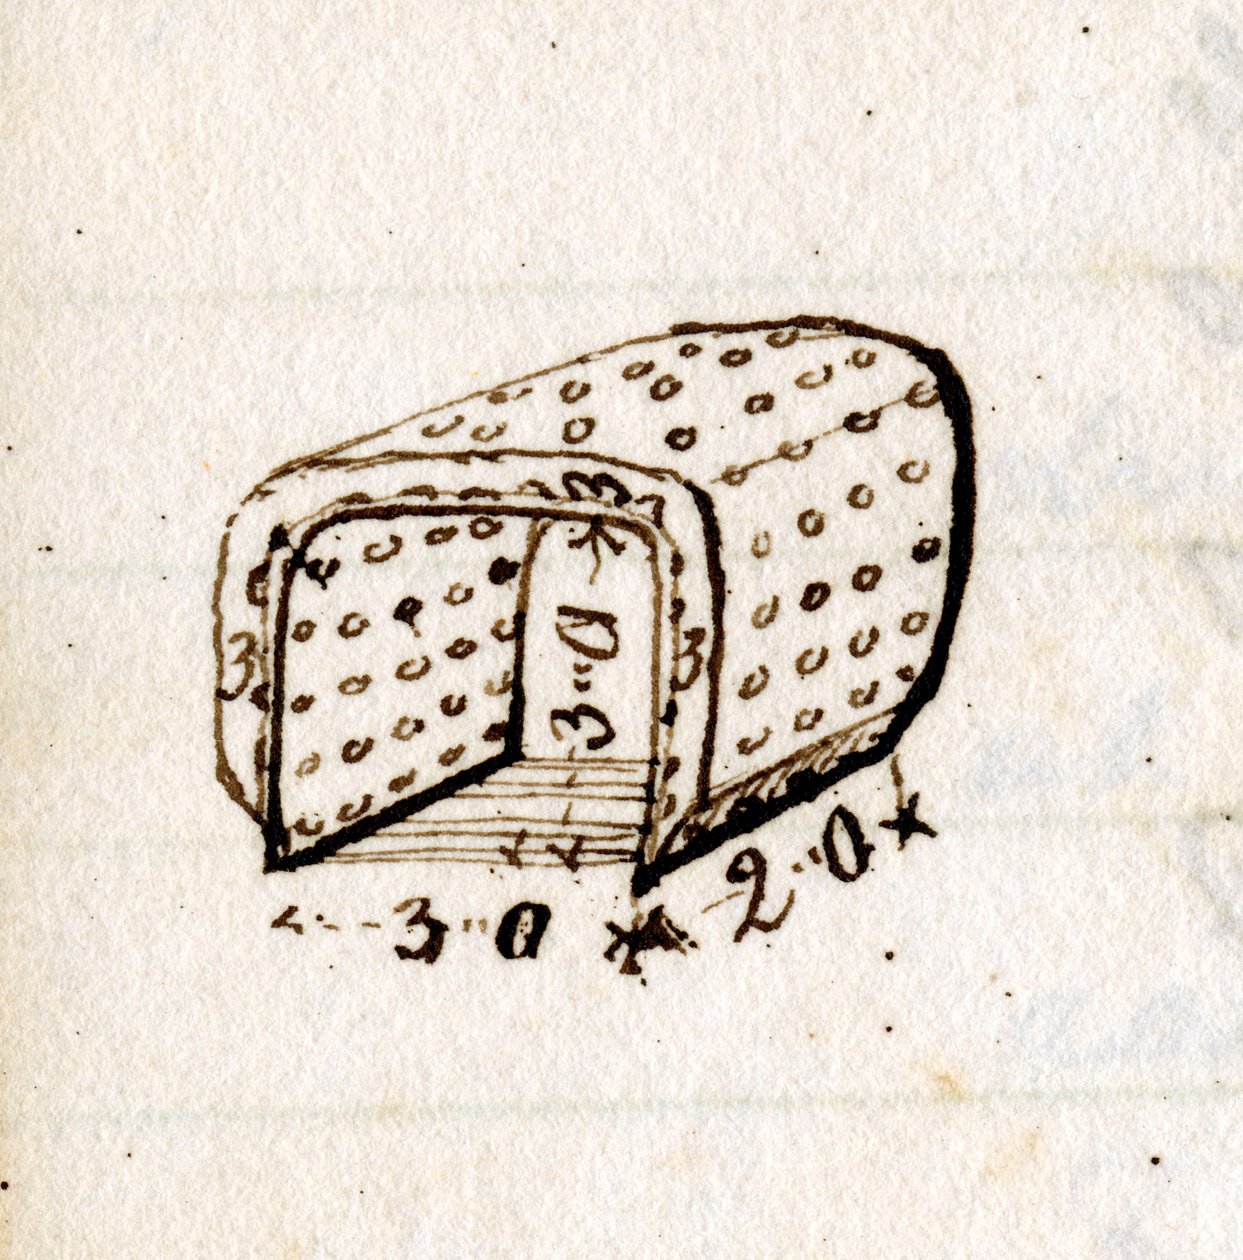 3
3
3
3"0
3"0
2"0